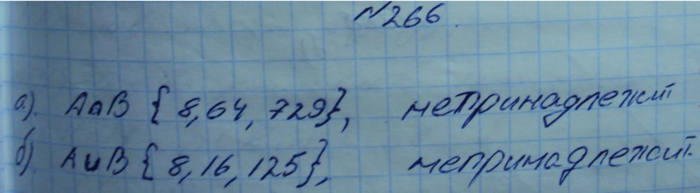 №266.
а). А∩В {8,64,729}, непринадлежит
б) АиВ {8,16,125}, непринадлежит